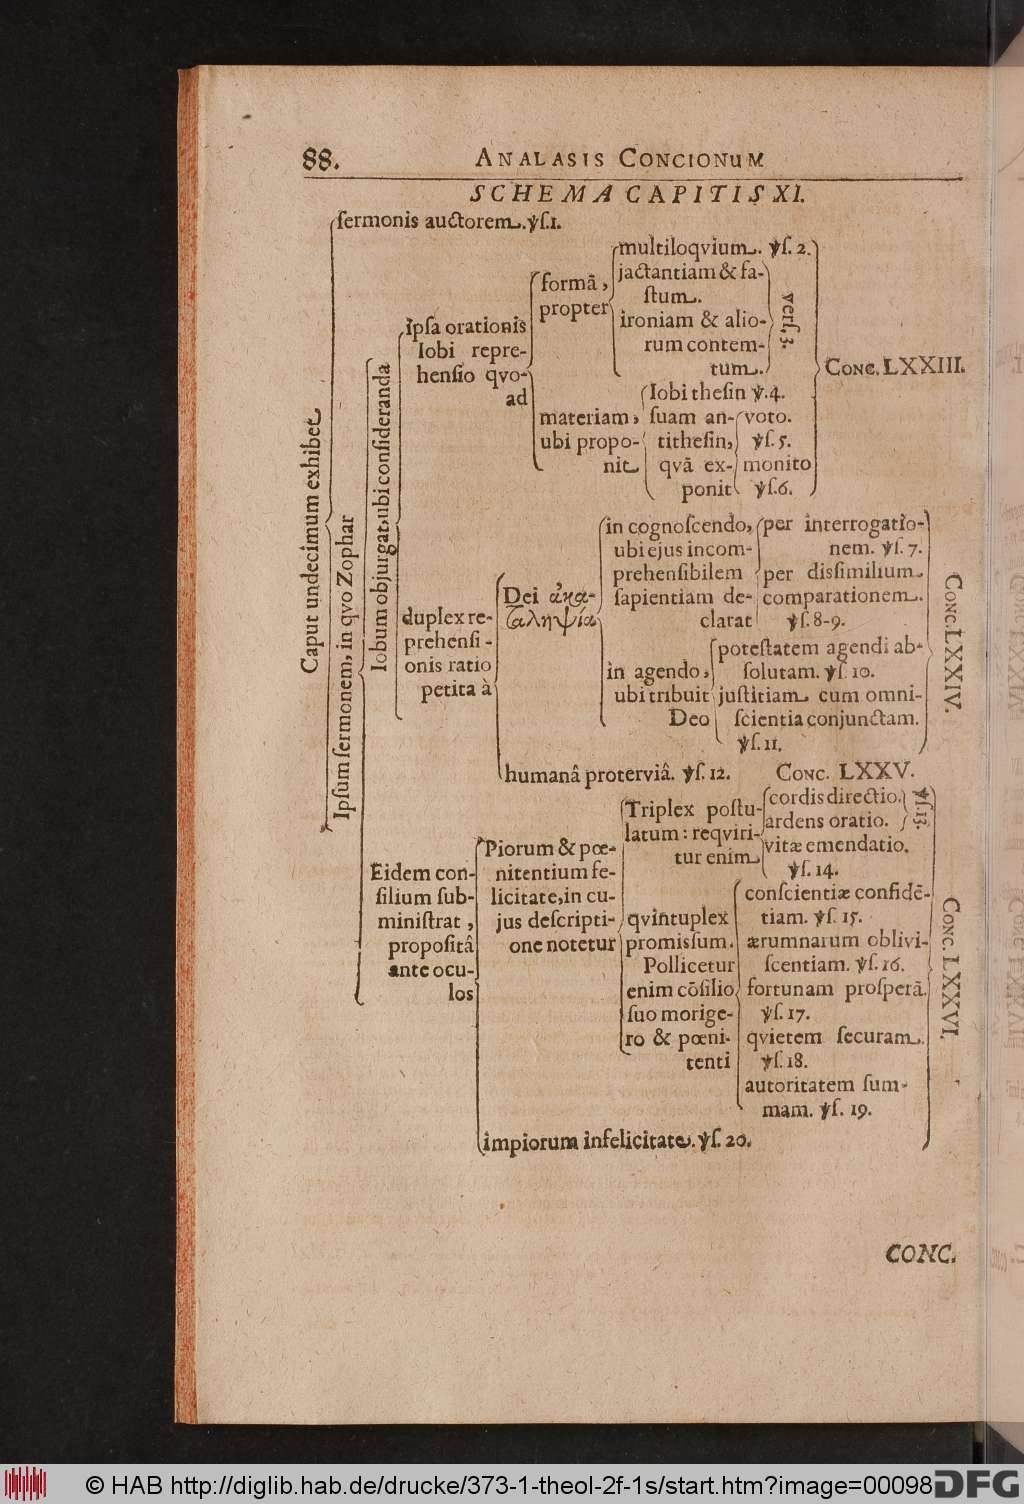 88.
ANALASIS CONCIONUM
SCHEMA CAPITIS XI.
Caput undecimum exhibet
sermonis auctorem. ℣s. 1.
Ipsum sermonem, in qvo Zophar
Iobum objurgat, ubi consideranda
Ipsa orationis
Iobi repre-
hensio qvo-
ad
formā,
propter
multiloqvium. ℣s. 2.
jactantiam & fa-
stum.
ironiam & alio-
rum contem-
tum.
vers. 3.
materiam,
ubi propo-
nit
Iobi thesin ℣. 4.
suam an-
tithesin,
qvā ex-
ponit
voto.
℣s. 5.
monito
℣s. 6.
CONC. LXXIII.
duplex re-
prehensi-
onis ratio
petita à
Dei ἀκα-
ταληψία
in cognoscendo,
ubi ejus incom-
prehensibilem
sapientiam de-
clarat
per interrogatio-
nem. ℣s. 7.
per dissimilium
comparationem.
℣s. 8-9.
in agendo,
ubi tribuit
Deo
potestatem agendi ab-
solutam. ℣s. 10.
justitiam cum omni-
scientia conjunctam.
℣s. 11.
CONC. LXXIV.
humanâ proterviâ. ℣s. 12.
CONC. LXXV.
Eidem con-
silium sub-
ministrat,
propositâ
ante ocu-
los
Piorum & pœ-
nitentium fe-
licitate, in cu-
jus descripti-
one notetur
Triplex postu-
latum: reqviri-
tur enim
cordis directio.
ardens oratio.
℣s. 13.
vitæ emendatio.
℣s. 14.
qvintuplex
promissum.
Pollicetur
enim cōsilio
suo morige-
ro & pœni-
tenti
conscientiæ confidē-
tiam. ℣s. 15.
ærumnarum oblivi-
scentiam. ℣s. 16.
fortunam prosperā.
℣s. 17.
qvietem securam.
℣s. 18.
autoritatem sum-
mam. ℣s. 19.
CONC. LXXVI.
impiorum infelicitate. ℣s. 20.
CONC.
© HAB http://diglib.hab.de/drucke/373-1-theol-2f-1s/start.htm?image=00098
DFG